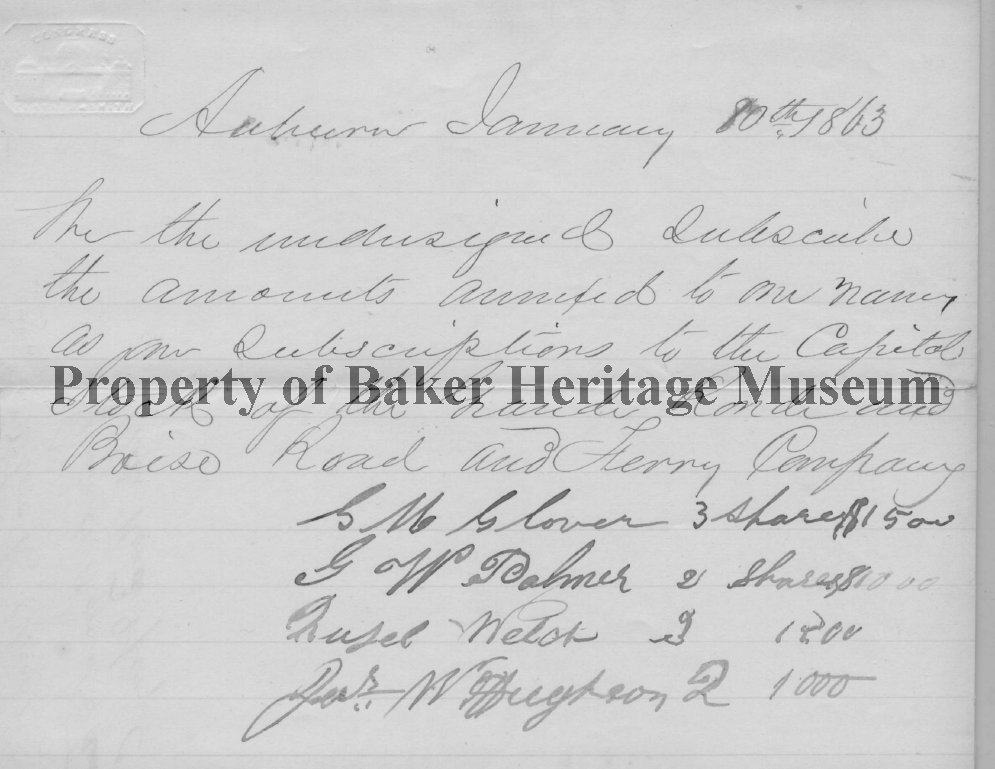 CONGRESS
Auburn January 10th 1863
We the undersigned Subscribe
the amounts annexed to our names
as our Subscriptions to the Capital
Stock of the Grande Ronde and
Property of Baker Heritage Museum
Boise Road and Ferry Company
G M Glover 3 shares $1500
G W Palmer 2 shares $1000
Welch 3 1500
W Hughson 2 1000